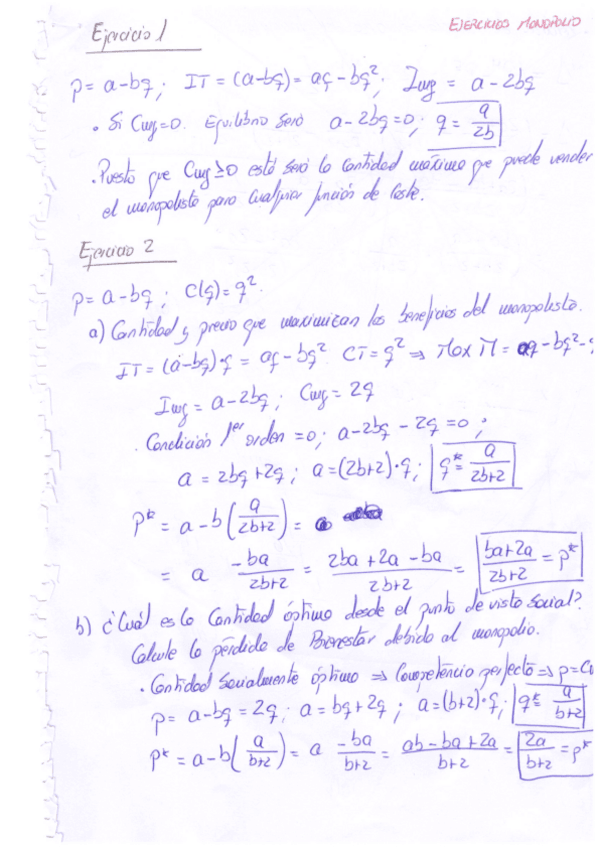 EJERCICIOS MONOPOLIO
Ejercicio 1
p = a - bq ; IT = (a-bq) = aq - bq²; Img = a - 2bq
• Si Cmg=0. Equilibrio será a - 2bq = 0; q = a/2b
. Puesto que Cmg ≥ 0 está será la Cantidad máxima que puede vender
el monopolista para cualquier función de Coste.
Ejercicio 2
p = a - bq ; C(q) = q².
a) Cantidad y precio que maximizan los beneficios del monopolista.
IT = (a-bq)·q = aq - bq² CT = q² ⇒ Max Π = aq - bq² -
Img = a - 2bq ; Cmg = 2q
. Condición 1er orden = 0; a - 2bq - 2q = 0 ;
a = 2bq + 2q ; a = (2b+2)·q ; q* = a/2b+2
P* = a - b(a/2b+2) =
= a -ba/2b+2 = 2ba + 2a - ba/2b+2 = ba+2a/2b+2 = p*
b) ¿Cuál es la Cantidad óptima desde el punto de vista Social?
Calcule la pérdida de Bienestar debida al monopolio.
. Cantidad Socialmente óptima ⇒ Competencia perfecta ⇒ p = C
p = a - bq = 2q ; a = bq + 2q ; a = (b+2)·q ; q* = a/b+2
P* = a - b(a/b+2) = a -ba/b+2 = ab - ba + 2a/b+2 = 2a/b+2 = p*